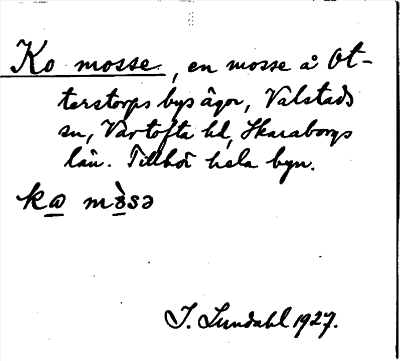 Ko mosse, en mosse å Ot-
terstorps bys ägor, Valstads
sn, Vartofta hd, Skaraborgs
län. Tillhör hela byn.
kω mòsə
I. Lundahl 1927.